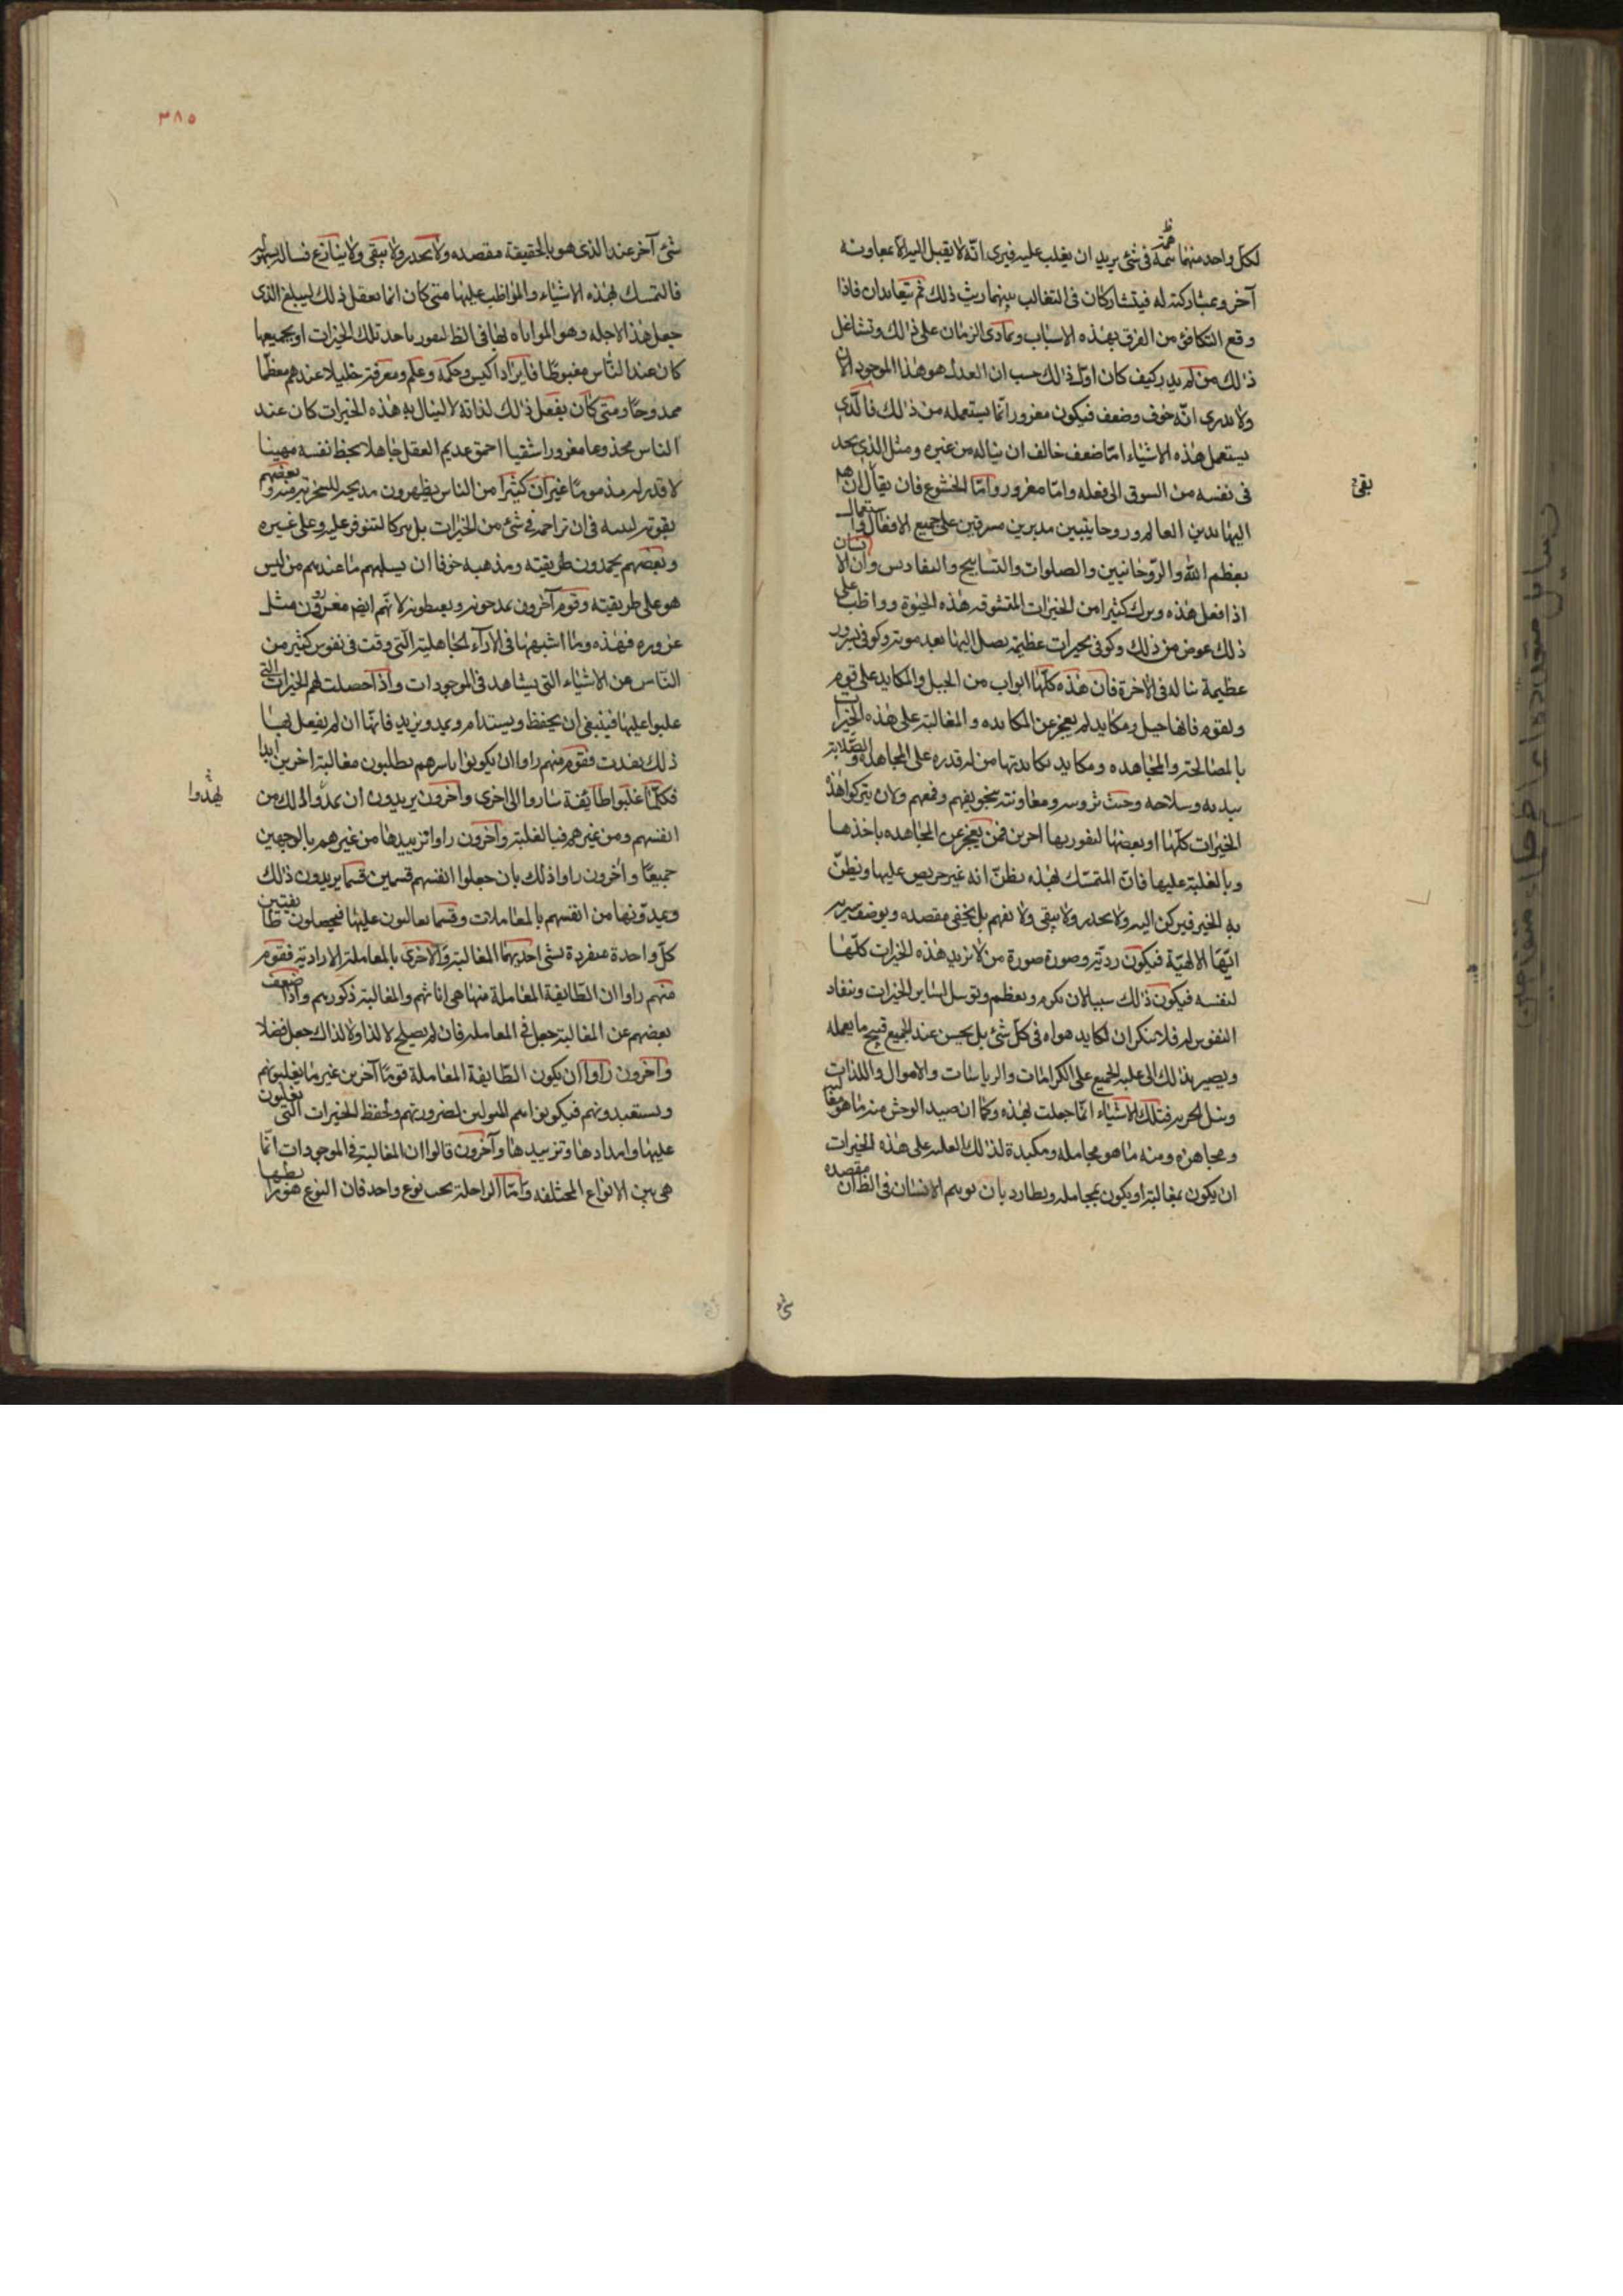 لكل واحد منهما همة فى شئ يريد ان يغلب عليه فيرى انّه لا يقبل اليه الا بمعاونه
آخر وبمشاركته له فيتشاركان فى التغالب بينهما ريث ذلك ثم يتعاندان فاذا
وقع التكافئ من الفرق بهذه الاسباب وتمادى الزمان على ذلك وتشاغل
ذلك من لم يدر كيف كان اول ذلك حسب ان العدل هو هذا الموجود الان
ولا يدرى انّه خوف وضعف فيكون مغرورا بما يستعمله من ذلك فالذى
يستعمل هذه الاشياء امّا ضعف خائف ان يناله من غيره ومثل الذى يجد
فى نفسه من السوق الى فعله وامّا مغرور وامّا الخشوع فان يقال ان
يعظم الله والرّوحانيين والصلوات والتسابيح والتقاديس وان الانسان
اذا فعل هذه وترك كثيرا من الخيرات المتشوقه هذه الحيوة وواظب على
ذلك عوض من ذلك وكوفى بخيرات عظيمة يصل اليها بعد موته
عظيمة يناله فى الآخرة فان هذه كلّها ابواب من الحيل والمكايد على قوم
ولقوم فانها حيل ومكايد لمن يعجز عن المكابده والمغالبة على هذه الخيرات
بالمصالحة والمجاهده ومكايد يكايد بها من لا قدره على المجاهده
الخيرات كلّها او بعضها ليفوز بها آخرين فمن يعجز عن المجاهده باخذها
وبالغلبة عليها فانّ المتمسّك بهذه يظنّ انه غير حريص عليها ويظنّ
به الخير فيركن اليه ولا يحذر ولا يتّقى ولا يتهم بل يخفى مقصده ويوصف سيرته
انّها الالهيّة فيكون زيه وصورة صورة من لا يريد هذه الخيرات كلّها
لنفسه فيكون ذلك سببا لان يكرم ويعظم ويوسل لساير الخيرات وينقاد
النفوس له فلا تنكر ان تكايد هواه فى كلّ شئ بل يحسن عند الجميع قبيح ما يعمله
ويصير بذلك الى غلبة الجميع على الكرامات والرياسات والاموال واللذات
ونيل الحرية فتلك الاشياء انّما جعلت لهذه وكما ان صيد الوحش منه ما هو مغالبة
ومجاهرة ومنه ما هو مخاتله ومكيدة لذلك الغلبه على هذه الخيرات
ان يكون بمغالبة او يكون بمخاتله ويطارد بان يوهم الانسان فى الظاهر ان مقصده
بقى
شئ
٣٨٥
شئ آخر عند الذى هو بالحقيقة مقصده ولا يحذر ولا يتّقى ولا ينازع فيناله بسهولة
فالمتمسك بهذه الاشياء والمواظب عليها متى كان انما يفعل ذلك ليبلغ الذى
جعل هذا لاجله وهو المواتاه بها فى الظاهر ليفوز باحد تلك الخيرات او بجميعها
كان عند النّاس مغبوطا فايزاد اكيس وحكمة وعلم ومعرفة جليلا عندهم معظّما
ممدوحا ومتى كان يفعل ذلك لذاته لا لينال به هذه الخيرات كان عند
الناس مخدوعا مغرورا شقيا احمق عديم العقل جاهلا بحظ نفسه مهينا
لا قدر له مذموما غير ان كثيرا من الناس يظهرون مديحه للسخرية منه وبعضهم
يقويه لنفسه فى ان لا تزاحمه فى شئ من الخيرات بل يتركها لتتوفر عليه وعلى غيره
وبعضهم يحمدون طريقته ومذهبه خوفا ان يسلبهم ما عندهم من ليس
هو على طريقته وقوم آخرون يمدحونه ويغبطونه لانّهم ايضا مغرورون مثل
غروره فهذه وما اشبهها فى الآراء الجاهلية الّتى وقعت فى نفوس كثير من
النّاس عن الاشياء التى يشاهد فى الموجودات واذا حصلت لهم الخيرات التى
غلبوا عليها فينبغى ان يحفظ ويستدام ويمد ويزيد فانّها ان لم يفعل بها
ذلك نفدت فقوم منهم راوا ان يكونوا باسرهم يطلبون مغالبة آخرين ابدا
فكلّما غلبوا طائفة ساروا الى اخرى وآخرون يريدون ان يمدّوا ذلك من
انفسهم ومن غيرهم فبالغلبة وآخرون راوا تزييدها من غيرهم بالوجهين
جميعا وآخرون راوا ذلك بان جعلوا انفسهم قسمين قسما يزيدون ذلك
ويمدّونها من انفسهم بالمعاملات وقسما يغالبون عليها فيحصلون طايفتين
كلّ واحدة منفردة بشئ احديهما المغالبة والاخرى بالمعاملة الارادية فقوم
منهم راوا ان الطّايفة المعاملة منها هى اناثهم والمغالبة ذكورهم واذا ضعف
بعضهم عن المغالبة جعل فى المعامله فان لم يصلح لا لذا ولا لذاك جعل فضلا
وآخرون راوا ان يكون الطّايفة المعاملة قوما آخرين غير ما يغلبونهم
ويستعبدونهم فيكونوا هم المتولين لضرورتهم ولحفظ الخيرات التى يغلبون
عليها وامدادها وتزييدها وآخرون قالوا ان المغالبة فى الموجودات انّما
هى بين الانواع المختلفه وامّا الداخلة تحت نوع واحد فان النوع هو رابطها